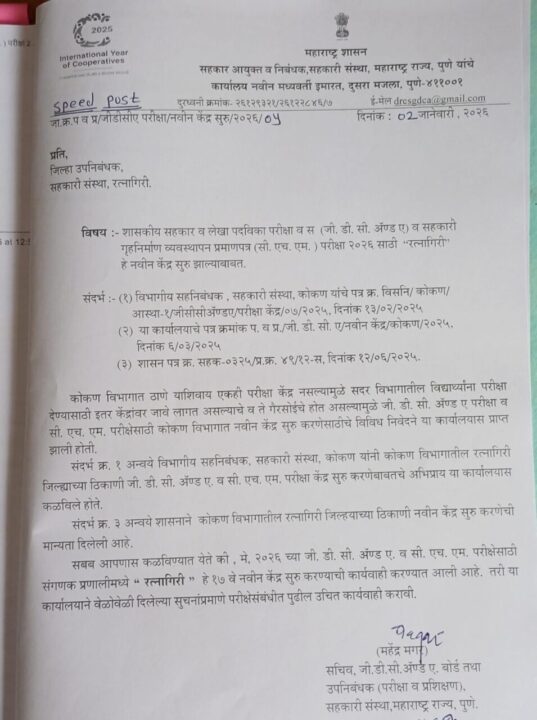 .) परीक्षा 2
2025
International Year
of Cooperatives
महाराष्ट्र शासन
सहकार आयुक्त व निबंधक,सहकारी संस्था, महाराष्ट्र राज्य, पुणे यांचे
कार्यालय नवीन मध्यवर्ती इमारत, दुसरा मजला, पुणे-४११००१
speed post
दुरध्वनी क्रमांक- २६१२९३२१/२६१२२८४६/७ ई-मेल drcsgdca@gmail.com
जा.क्र.प व प्र/जीडीसीए परीक्षा/नवीन केंद्र सुरु/२०२६/04 दिनांक : 02 जानेवारी, २०२६
प्रति,
जिल्हा उपनिबंधक,
सहकारी संस्था, रत्नागिरी.
at 12:5
विषय :- शासकीय सहकार व लेखा पदविका परीक्षा व स (जी. डी. सी. ॲण्ड ए) व सहकारी
गृहनिर्माण व्यवस्थापन प्रमाणपत्र (सी. एच. एम. ) परीक्षा २०२६ साठी "रत्नागिरी"
हे नवीन केंद्र सुरु झाल्याबाबत.
संदर्भ :- (१) विभागीय सहनिबंधक , सहकारी संस्था, कोकण यांचे पत्र क्र. विसनि/ कोकण/
आस्था-१/जीसीसीॲण्डए/परीक्षा केंद्र/०७/२०२५, दिनांक १३/०२/२०२५
(२) या कार्यालयाचे पत्र क्रमांक प. व प्र./जी. डी. सी. ए/नवीन केंद्र/कोकण/२०२५,
दिनांक ६/०३/२०२५
(३) शासन पत्र क्र. सहक-०३२५/प्र.क्र. ४९/१२-स, दिनांक १२/०६/२०२५.
कोकण विभागात ठाणे याशिवाय एकही परीक्षा केंद्र नसल्यामुळे सदर विभागातील विद्यार्थ्यांना परीक्षा
देण्यासाठी इतर केंद्रांवर जावे लागत असल्याचे व ते गैरसोईचे होत असल्यामुळे जी. डी. सी. ॲण्ड ए परीक्षा व
सी. एच. एम. परीक्षेसाठी कोकण विभागात नवीन केंद्र सुरु करणेसाठीचे विविध निवेदने या कार्यालयास प्राप्त
झाली होती.
संदर्भ क्र. १ अन्वये विभागीय सहनिबंधक, सहकारी संस्था, कोकण यांनी कोकण विभागातील रत्नागिरी
जिल्ह्याच्या ठिकाणी जी. डी. सी. ॲण्ड ए. व सी. एच. एम. परीक्षा केंद्र सुरु करणेबाबतचे अभिप्राय या कार्यालयास
कळविले होते.
संदर्भ क्र. ३ अन्वये शासनाने कोकण विभागातील रत्नागिरी जिल्हयाच्या ठिकाणी नवीन केंद्र सुरु करणेची
मान्यता दिलेली आहे.
सबब आपणास कळविण्यात येते की , मे, २०२६ च्या जी. डी. सी. ॲण्ड ए. व सी. एच. एम. परीक्षेसाठी
संगणक प्रणालीमध्ये " रत्नागिरी " हे १७ वे नवीन केंद्र सुरु करण्याची कार्यवाही करण्यात आली आहे. तरी या
कार्यालयाने वेळोवेळी दिलेल्या सुचनांप्रमाणे परीक्षेसंबंधीत पुढील उचित कार्यवाही करावी.
(महेंद्र मगर)
सचिव, जी.डी.सी.ॲण्ड ए. बोर्ड तथा
उपनिबंधक (परीक्षा व प्रशिक्षण),
सहकारी संस्था,महाराष्ट्र राज्य, पुणे.